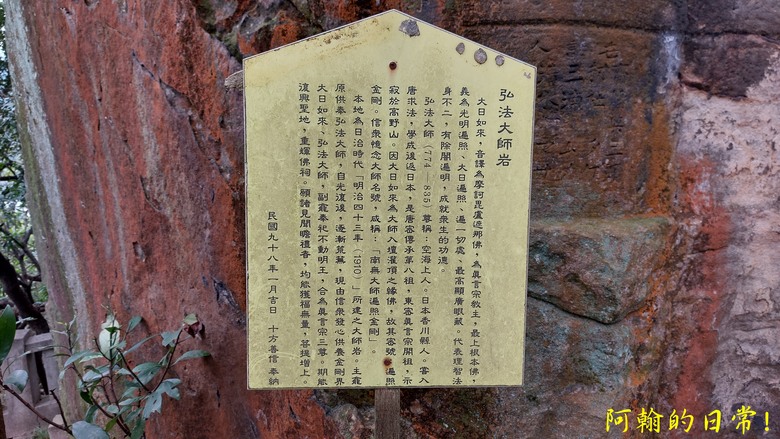 弘法大師岩
大日如來，音譯為摩訶毘盧遮那佛，為真言宗教主，最上根本佛，
義為光明遍照、大日遍照、遍一切處、最高顯廣眼藏。代表理智法
身不二，有除闇遍明，成就衆生的功德。
弘法大師（774—835）尊稱：空海上人。日本香川縣人。嘗入
唐求法，學成後返日本，是唐密傳承第八祖，東密真言宗開祖，示
寂於高野山。因大日如來為大師入壇灌頂之緣佛，故其密號：遍照
金剛。信衆憶念大師名號，咸稱：「南無大師遍照金剛」。
本地為日治時代「明治四十三年（1910）」所建之大師岩。主龕
原供奉弘法大師，自光復後，逐漸荒蕪，現由信衆發心供養金剛界
大日如來、弘法大師，副龕奉祀不動明王，合為真言宗三尊。期能
復興聖地，重輝佛祠。願諸見聞瞻禮者，均能獲福無量，菩提增上。
民國九十八年一月吉日　十方善信奉納
阿翰的日常!